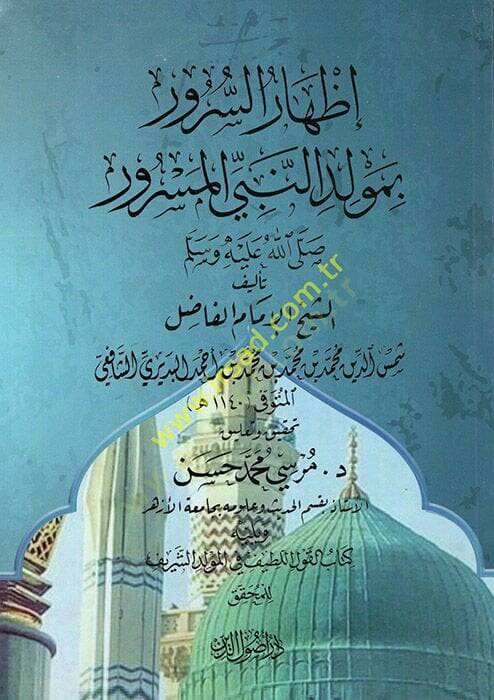 إظهار السرور
بمولد النبي المسرور
صلى الله عليه وسلم
تأليف
الشيخ الإمام الفاضل
شمس الدين محمد بن محمد بن محمد بن أحمد البديري الشافعي
المتوفى (١١٤٠ هـ)
تحقيق وتعليق
د. مرسي محمد حسن
الأستاذ بقسم الحديث وعلومه بجامعة الأزهر
ويليه
كتاب القول اللطيف في المولد الشريف
للمحقق
دار أصول الدين